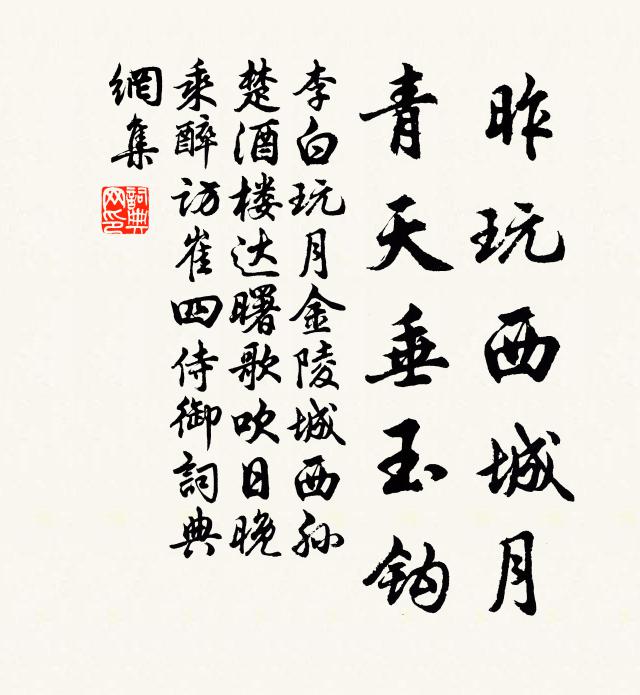 昨玩西城月
青天垂玉钩
李白玩月金陵城西孙
楚酒楼达曙歌吹日晚
乘醉访崔四侍御詞典
網集
詞典
网印